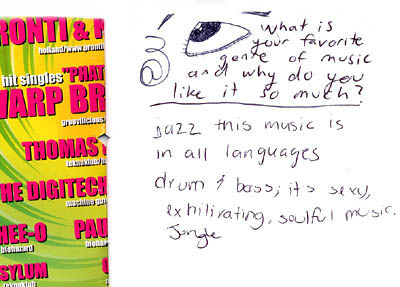 RONTI & K
holland/www.pronti
hit singles "PHAT
WARP BR
groovilicious
THOMAS
THE DIGITECH
machine gun
HEE-O PAU
biohazard mohaw
SYLUM
3
What is
your favorite
genre of music
and why do you
like it so much?
jazz this music is
in all languages
drum & bass; its sexy,
exhilirating, soulful music.
Jungle